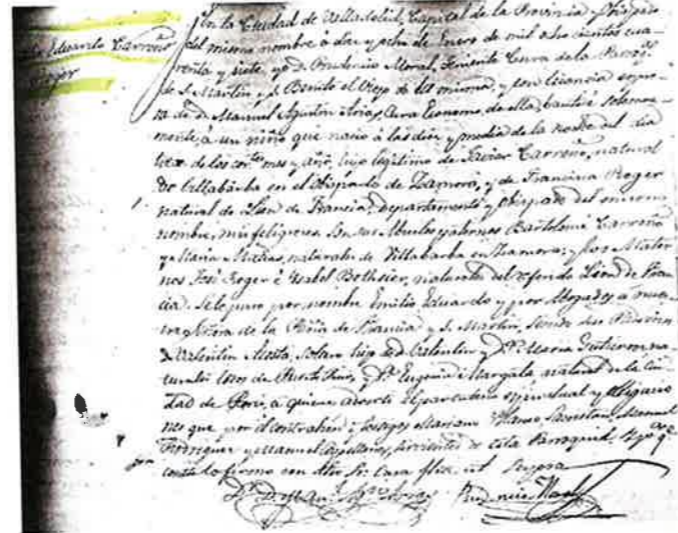 Eduardo Carreño
Roger
En la Ciudad de Valladolid, Capital de la Provincia y Obispado
del mismo nombre à diez y ocho de Enero de mil ochocientos cua-
renta y siete, yo D. Prudencio Moral, Teniente Cura de la Parroql.
de S. Martin y S. Benito el Viejo de la misma, y con licencia espre-
sa de D. Manuel Agustin Arias, Cura Economo de ella, bauticé solemne-
mente à un niño que nació à las diez y media de la noche del dia
de los mes y año, hijo legitimo de Javier Carreño, natural
de Villabarba en el Obispado de Zamora, y de Francisca Roger
natural de Lion de Francia, departamento y obispado del mismo
nombre, mis feligreses. Son sus Abuelos paternos Bartolomé Carreño
y Maria Matias, naturales de Villabarba en Zamora; y los Mater-
nos José Roger é Isabel naturales del referido Lion de Fran-
cia. Se le puso por nombre Emilio Eduardo y por Abogados à nues-
tra Señora de la Peña de Francia y S. Martin, siendo sus Padrinos
D. Valentin soltero hijo de D. Valentin y Dª Maria Gutierrez, na-
turales de y Dª Eugenia natural de la Ciu-
dad de Paris, à quienes advertí el parentesco espiritual y obligacio-
nes que por el contrahen; testigos Mariano Blanco, Sacristan, Manuel
Rodriguez y Manuel sirvientes de esta Parroquia. Y pª qe
conste lo firmo con dho Sr. Cura fha. ut supra
Prudencio Moral